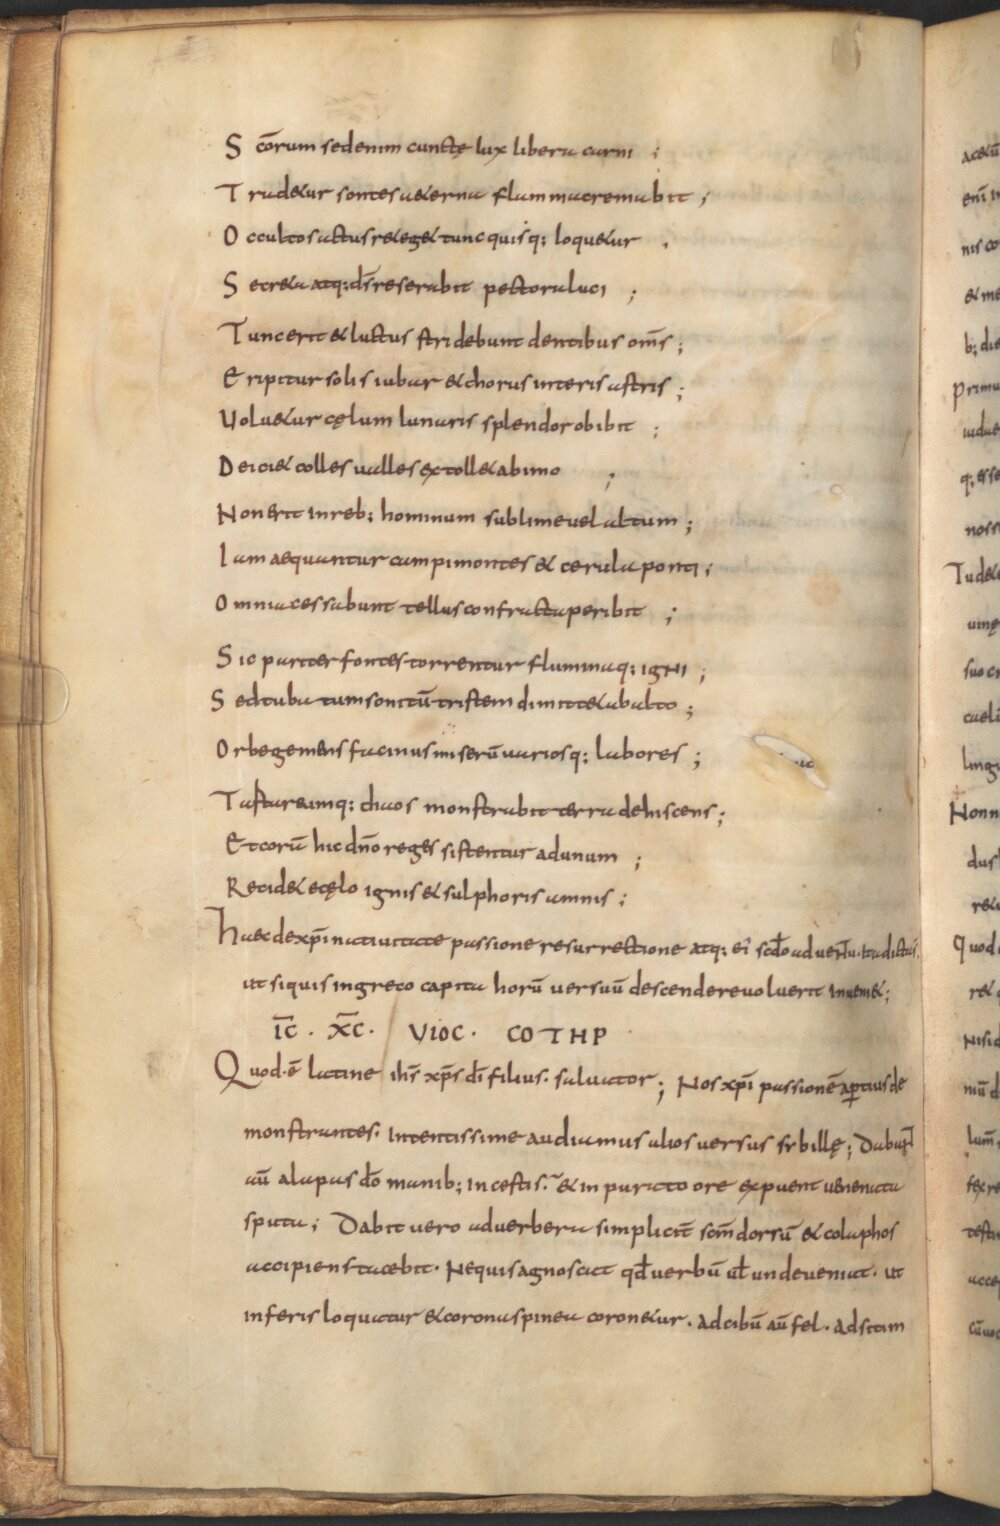 S cōrum sed enim cunctę lux libera carni ;
Tradetur sontes aeterna flamma cremabit ;
Occultos actus reteget tunc quisq; loquetur .
Secreta atq; ds̄ reserabit pectora luci ;
Tunc erit & luctus stridebunt dentibus om̄s ;
Eripitur solis iubar & chorus interis astris ;
Uoluetur cęlum lunaris splendor obibit ;
Deiciet colles ualles extollet ab imo ;
Non erit in reb; hominum sublime uel altum ;
Iam aequantur campi montes & cerula ponti ;
Omnia cessabunt tellus confracta peribit ;
Sic pariter fontes torrentur fluminaq; igni ;
Sed tuba tum sonitū tristem dimittet ab alto ;
Orbe gemens facinus miserū uariosq; labores ;
Tartareumq; chaos monstrabit terra dehiscens ;
Et corū hic dn̄o reges sistentur ad unum ;
Recidet ecęlo ignis & sulphoris amnis ;
Haec dexp̄i natiuitate passione resurrectione atq; ei scd̄o aduentu. ita dictu
ut siquis ingreco capita horū uersuū descendere uoluerit inueniet ;
IC̄ . XC̄ . VIOC . COTHP
Quod. ē latine ihs̄ xp̄s dī filius. saluator ; Nos xp̄i passionē apertius de
monstrantes. Intentissime audiamus alios uersus sybillę ; Dabunt
aū alapas dō manib; incestis. & inpurato ore expuent uenenata
sputa ; Dabit uero aduerbera simplicit̄ scm̄ dorsū & colaphos
accipiens tacebit. Nequis agnoscat qd̄ uerbū ul̄ unde ueniat. ut
inferis loquatur & corona spinea coronetur. Adcibū aū fel. adsitim